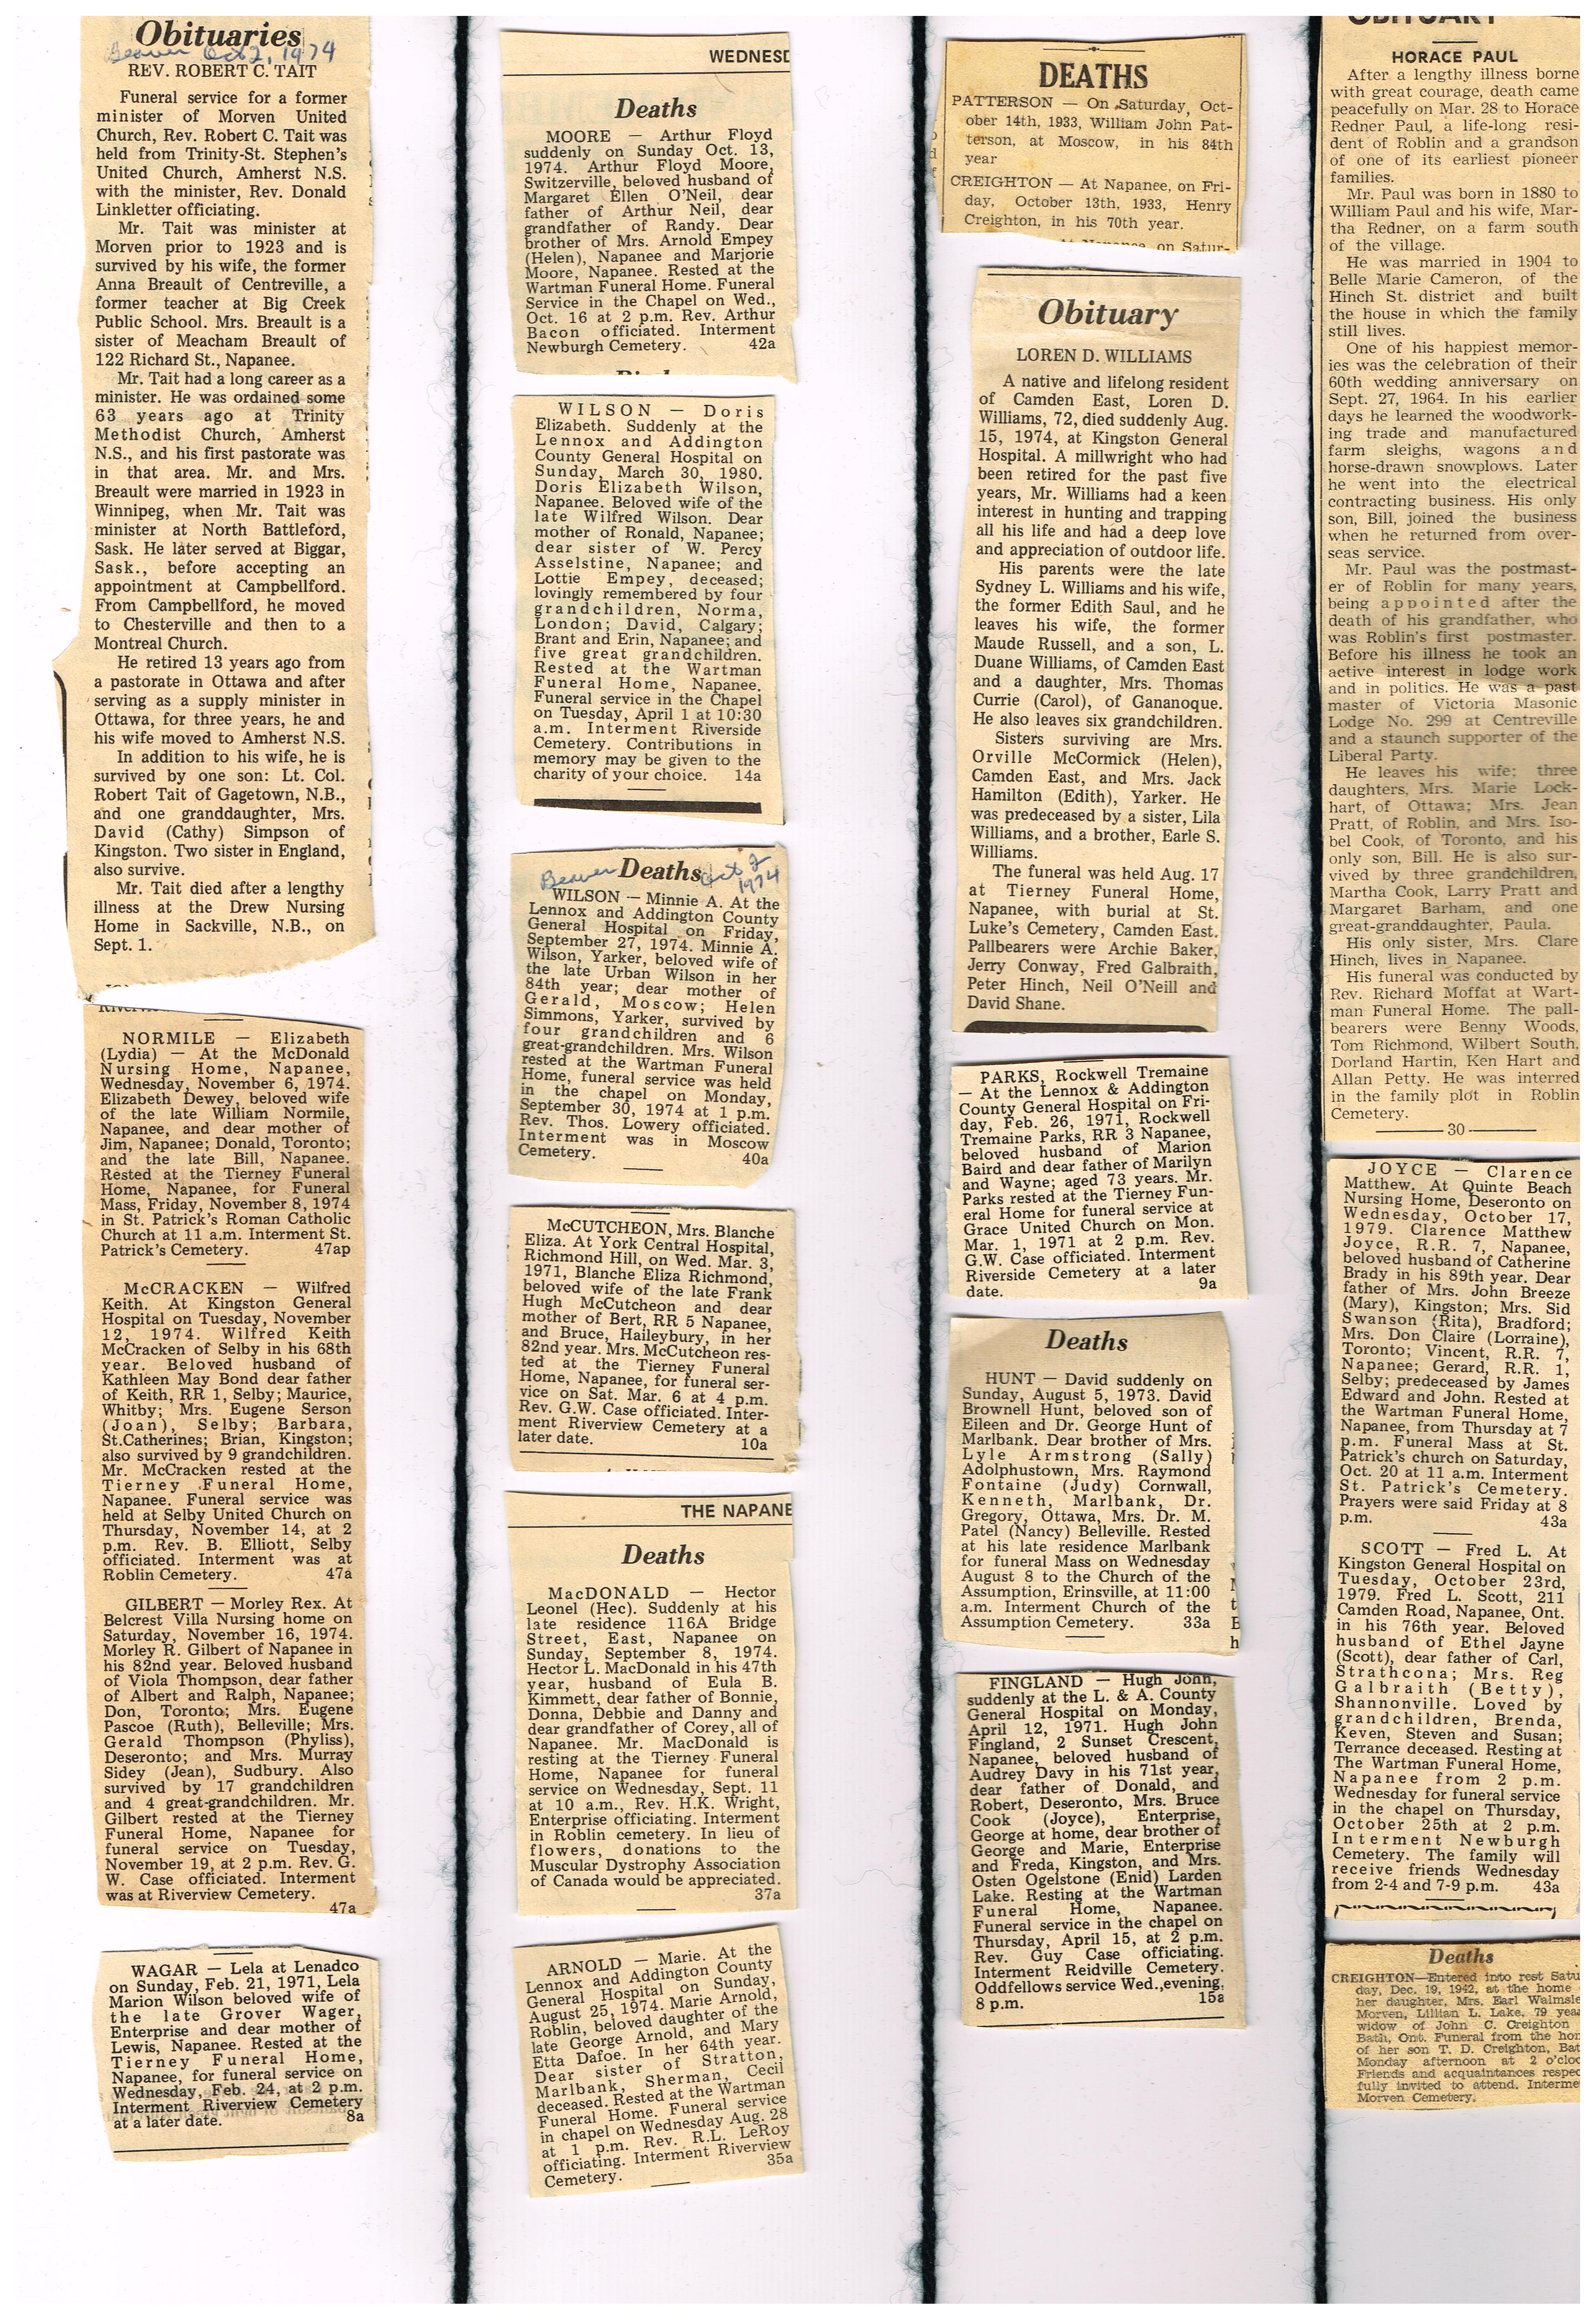 Obituaries
Beaver Oct 2, 1974
REV. ROBERT C. TAIT
Funeral service for a former
minister of Morven United
Church, Rev. Robert C. Tait was
held from Trinity-St. Stephen's
United Church, Amherst N.S.
with the minister, Rev. Donald
Linkletter officiating.
Mr. Tait was minister at
Morven prior to 1923 and is
survived by his wife, the former
Anna Breault of Centreville, a
former teacher at Big Creek
Public School. Mrs. Breault is a
sister of Meacham Breault of
122 Richard St., Napanee.
Mr. Tait had a long career as a
minister. He was ordained some
63 years ago at Trinity
Methodist Church, Amherst
N.S., and his first pastorate was
in that area. Mr. and Mrs.
Breault were married in 1923 in
Winnipeg, when Mr. Tait was
minister at North Battleford,
Sask. He later served at Biggar,
Sask., before accepting an
appointment at Campbellford.
From Campbellford, he moved
to Chesterville and then to a
Montreal Church.
He retired 13 years ago from
a pastorate in Ottawa and after
serving as a supply minister in
Ottawa, for three years, he and
his wife moved to Amherst N.S.
In addition to his wife, he is
survived by one son: Lt. Col.
Robert Tait of Gagetown, N.B.,
and one granddaughter, Mrs.
David (Cathy) Simpson of
Kingston. Two sister in England,
also survive.
Mr. Tait died after a lengthy
illness at the Drew Nursing
Home in Sackville, N.B., on
Sept. 1.
NORMILE — Elizabeth
(Lydia) — At the McDonald
Nursing Home, Napanee,
Wednesday, November 6, 1974.
Elizabeth Dewey, beloved wife
of the late William Normile,
Napanee, and dear mother of
Jim, Napanee; Donald, Toronto;
and the late Bill, Napanee.
Rested at the Tierney Funeral
Home, Napanee, for Funeral
Mass, Friday, November 8, 1974
in St. Patrick's Roman Catholic
Church at 11 a.m. Interment St.
Patrick's Cemetery. 47ap
McCRACKEN — Wilfred
Keith. At Kingston General
Hospital on Tuesday, November
12, 1974. Wilfred Keith
McCracken of Selby in his 68th
year. Beloved husband of
Kathleen May Bond dear father
of Keith, RR 1, Selby; Maurice,
Whitby; Mrs. Eugene Serson
(Joan), Selby; Barbara,
St.Catherines; Brian, Kingston;
also survived by 9 grandchildren.
Mr. McCracken rested at the
Tierney Funeral Home,
Napanee. Funeral service was
held at Selby United Church on
Thursday, November 14, at 2
p.m. Rev. B. Elliott, Selby
officiated. Interment was at
Roblin Cemetery. 47a
GILBERT — Morley Rex. At
Belcrest Villa Nursing home on
Saturday, November 16, 1974.
Morley R. Gilbert of Napanee in
his 82nd year. Beloved husband
of Viola Thompson, dear father
of Albert and Ralph, Napanee;
Don, Toronto; Mrs. Eugene
Pascoe (Ruth), Belleville; Mrs.
Gerald Thompson (Phyliss),
Deseronto; and Mrs. Murray
Sidey (Jean), Sudbury. Also
survived by 17 grandchildren
and 4 great-grandchildren. Mr.
Gilbert rested at the Tierney
Funeral Home, Napanee for
funeral service on Tuesday,
November 19, at 2 p.m. Rev. G.
W. Case officiated. Interment
was at Riverview Cemetery.
47a
WAGAR — Lela at Lenadco
on Sunday, Feb. 21, 1971, Lela
Marion Wilson beloved wife of
the late Grover Wager,
Enterprise and dear mother of
Lewis, Napanee. Rested at the
Tierney Funeral Home,
Napanee, for funeral service on
Wednesday, Feb. 24, at 2 p.m.
Interment Riverview Cemetery
at a later date. 8a
WEDNESD
Deaths
MOORE — Arthur Floyd
suddenly on Sunday Oct. 13,
1974. Arthur Floyd Moore,
Switzerville, beloved husband of
Margaret Ellen O'Neil, dear
father of Arthur Neil, dear
grandfather of Randy. Dear
brother of Mrs. Arnold Empey
(Helen), Napanee and Marjorie
Moore, Napanee. Rested at the
Wartman Funeral Home. Funeral
Service in the Chapel on Wed.,
Oct. 16 at 2 p.m. Rev. Arthur
Bacon officiated. Interment
Newburgh Cemetery. 42a
WILSON — Doris
Elizabeth. Suddenly at the
Lennox and Addington
County General Hospital on
Sunday, March 30, 1980.
Doris Elizabeth Wilson,
Napanee. Beloved wife of the
late Wilfred Wilson. Dear
mother of Ronald, Napanee;
dear sister of W. Percy
Asselstine, Napanee; and
Lottie Empey, deceased;
lovingly remembered by four
grandchildren, Norma,
London; David, Calgary;
Brant and Erin, Napanee; and
five great grandchildren.
Rested at the Wartman
Funeral Home, Napanee.
Funeral service in the Chapel
on Tuesday, April 1 at 10:30
a.m. Interment Riverside
Cemetery. Contributions in
memory may be given to the
charity of your choice. 14a
Deaths
Beaver Oct 2 1974
WILSON — Minnie A. At the
Lennox and Addington County
General Hospital on Friday,
September 27, 1974. Minnie A.
Wilson, Yarker, beloved wife of
the late Urban Wilson in her
84th year; dear mother of
Gerald, Moscow; Helen
Simmons, Yarker, survived by
four grandchildren and 6
great-grandchildren. Mrs. Wilson
rested at the Wartman Funeral
Home, funeral service was held
in the chapel on Monday,
September 30, 1974 at 1 p.m.
Rev. Thos. Lowery officiated.
Interment was in Moscow
Cemetery. 40a
McCUTCHEON, Mrs. Blanche
Eliza. At York Central Hospital,
Richmond Hill, on Wed. Mar. 3,
1971, Blanche Eliza Richmond,
beloved wife of the late Frank
Hugh McCutcheon and dear
mother of Bert, RR 5 Napanee,
and Bruce, Haileybury, in her
82nd year. Mrs. McCutcheon res-
ted at the Tierney Funeral
Home, Napanee, for funeral ser-
vice on Sat. Mar. 6 at 4 p.m.
Rev. G.W. Case officiated. Inter-
ment Riverview Cemetery at a
later date. 10a
THE NAPANE
Deaths
MacDONALD — Hector
Leonel (Hec). Suddenly at his
late residence 116A Bridge
Street, East, Napanee on
Sunday, September 8, 1974.
Hector L. MacDonald in his 47th
year, husband of Eula B.
Kimmett, dear father of Bonnie,
Donna, Debbie and Danny and
dear grandfather of Corey, all of
Napanee. Mr. MacDonald is
resting at the Tierney Funeral
Home, Napanee for funeral
service on Wednesday, Sept. 11
at 10 a.m., Rev. H.K. Wright,
Enterprise officiating. Interment
in Roblin cemetery. In lieu of
flowers, donations to the
Muscular Dystrophy Association
of Canada would be appreciated.
37a
ARNOLD — Marie. At the
Lennox and Addington County
General Hospital on Sunday,
August 25, 1974. Marie Arnold,
Roblin, beloved daughter of the
late George Arnold, and Mary
Etta Dafoe. In her 64th year.
Dear sister of Stratton,
Marlbank, Sherman, Cecil
deceased. Rested at the Wartman
Funeral Home. Funeral service
in chapel on Wednesday Aug. 28
at 1 p.m. Rev. R.L. LeRoy
officiating. Interment Riverview
Cemetery. 35a
DEATHS
PATTERSON — On Saturday, Oct-
ober 14th, 1933, William John Pat-
terson, at Moscow, in his 84th
year
CREIGHTON — At Napanee, on Fri-
day, October 13th, 1933, Henry
Creighton, in his 70th year.
At Napanee, on Satur-
Obituary
LOREN D. WILLIAMS
A native and lifelong resident
of Camden East, Loren D.
Williams, 72, died suddenly Aug.
15, 1974, at Kingston General
Hospital. A millwright who had
been retired for the past five
years, Mr. Williams had a keen
interest in hunting and trapping
all his life and had a deep love
and appreciation of outdoor life.
His parents were the late
Sydney L. Williams and his wife,
the former Edith Saul, and he
leaves his wife, the former
Maude Russell, and a son, L.
Duane Williams, of Camden East
and a daughter, Mrs. Thomas
Currie (Carol), of Gananoque.
He also leaves six grandchildren.
Sisters surviving are Mrs.
Orville McCormick (Helen),
Camden East, and Mrs. Jack
Hamilton (Edith), Yarker. He
was predeceased by a sister, Lila
Williams, and a brother, Earle S.
Williams.
The funeral was held Aug. 17
at Tierney Funeral Home,
Napanee, with burial at St.
Luke's Cemetery, Camden East.
Pallbearers were Archie Baker,
Jerry Conway, Fred Galbraith,
Peter Hinch, Neil O'Neill and
David Shane.
PARKS, Rockwell Tremaine
— At the Lennox & Addington
County General Hospital on Fri-
day, Feb. 26, 1971, Rockwell
Tremaine Parks, RR 3 Napanee,
beloved husband of Marion
Baird and dear father of Marilyn
and Wayne; aged 73 years. Mr.
Parks rested at the Tierney Fun-
eral Home for funeral service at
Grace United Church on Mon.
Mar. 1, 1971 at 2 p.m. Rev.
G.W. Case officiated. Interment
Riverside Cemetery at a later
date. 9a
Deaths
HUNT — David suddenly on
Sunday, August 5, 1973. David
Brownell Hunt, beloved son of
Eileen and Dr. George Hunt of
Marlbank. Dear brother of Mrs.
Lyle Armstrong (Sally)
Adolphustown, Mrs. Raymond
Fontaine (Judy) Cornwall,
Kenneth, Marlbank, Dr.
Gregory, Ottawa, Mrs. Dr. M.
Patel (Nancy) Belleville. Rested
at his late residence Marlbank
for funeral Mass on Wednesday
August 8 to the Church of the
Assumption, Erinsville, at 11:00
a.m. Interment Church of the
Assumption Cemetery. 33a
FINGLAND — Hugh John,
suddenly at the L. & A. County
General Hospital on Monday,
April 12, 1971. Hugh John
Fingland, 2 Sunset Crescent,
Napanee, beloved husband of
Audrey Davy in his 71st year,
dear father of Donald, and
Robert, Deseronto, Mrs. Bruce
Cook (Joyce), Enterprise,
George at home, dear brother of
George and Marie, Enterprise
and Freda, Kingston, and Mrs.
Osten Ogelstone (Enid) Larden
Lake. Resting at the Wartman
Funeral Home, Napanee.
Funeral service in the chapel on
Thursday, April 15, at 2 p.m.
Rev. Guy Case officiating.
Interment Reidville Cemetery.
Oddfellows service Wed.,evening,
8 p.m. 15a
OBITUARY
HORACE PAUL
After a lengthy illness borne
with great courage, death came
peacefully on Mar. 28 to Horace
Redner Paul, a life-long resi-
dent of Roblin and a grandson
of one of its earliest pioneer
families.
Mr. Paul was born in 1880 to
William Paul and his wife, Mar-
tha Redner, on a farm south
of the village.
He was married in 1904 to
Belle Marie Cameron, of the
Hinch St. district and built
the house in which the family
still lives.
One of his happiest memor-
ies was the celebration of their
60th wedding anniversary on
Sept. 27, 1964. In his earlier
days he learned the woodwork-
ing trade and manufactured
farm sleighs, wagons and
horse-drawn snowplows. Later
he went into the electrical
contracting business. His only
son, Bill, joined the business
when he returned from over-
seas service.
Mr. Paul was the postmast-
er of Roblin for many years,
being appointed after the
death of his grandfather, who
was Roblin's first postmaster.
Before his illness he took an
active interest in lodge work
and in politics. He was a past
master of Victoria Masonic
Lodge No. 299 at Centreville
and a staunch supporter of the
Liberal Party.
He leaves his wife; three
daughters, Mrs. Marie Lock-
hart, of Ottawa; Mrs. Jean
Pratt, of Roblin, and Mrs. Iso-
bel Cook, of Toronto, and his
only son, Bill. He is also sur-
vived by three grandchildren,
Martha Cook, Larry Pratt and
Margaret Barham, and one
great-granddaughter, Paula.
His only sister, Mrs. Clare
Hinch, lives in Napanee.
His funeral was conducted by
Rev. Richard Moffat at Wart-
man Funeral Home. The pall-
bearers were Benny Woods,
Tom Richmond, Wilbert South,
Dorland Hartin, Ken Hart and
Allan Petty. He was interred
in the family plot in Roblin
Cemetery.
30
JOYCE — Clarence
Matthew. At Quinte Beach
Nursing Home, Deseronto on
Wednesday, October 17,
1979. Clarence Matthew
Joyce, R.R. 7, Napanee,
beloved husband of Catherine
Brady in his 89th year. Dear
father of Mrs. John Breeze
(Mary), Kingston; Mrs. Sid
Swanson (Rita), Bradford;
Mrs. Don Claire (Lorraine),
Toronto; Vincent, R.R. 7,
Napanee; Gerard, R.R. 1,
Selby; predeceased by James
Edward and John. Rested at
the Wartman Funeral Home,
Napanee, from Thursday at 7
p.m. Funeral Mass at St.
Patrick's church on Saturday,
Oct. 20 at 11 a.m. Interment
St. Patrick's Cemetery.
Prayers were said Friday at 8
p.m. 43a
SCOTT — Fred L. At
Kingston General Hospital on
Tuesday, October 23rd,
1979. Fred L. Scott, 211
Camden Road, Napanee, Ont.
in his 76th year. Beloved
husband of Ethel Jayne
(Scott), dear father of Carl,
Strathcona; Mrs. Reg
Galbraith (Betty),
Shannonville. Loved by
grandchildren, Brenda,
Keven, Steven and Susan;
Terrance deceased. Resting at
The Wartman Funeral Home,
Napanee from 2 p.m.
Wednesday for funeral service
in the chapel on Thursday,
October 25th at 2 p.m.
Interment Newburgh
Cemetery. The family will
receive friends Wednesday
from 2-4 and 7-9 p.m. 43a
Deaths
CREIGHTON—Entered into rest Satu
day, Dec. 19, 1942, at the home
her daughter, Mrs. Earl Walmsle
Morven, Lillian L. Lake, 79 yea
widow of John C. Creighton
Bath, Ont. Funeral from the hom
of her son T. D. Creighton, Bat
Monday afternoon at 2 o'cloc
Friends and acquaintances respec
fully invited to attend. Interme
Morven Cemetery.